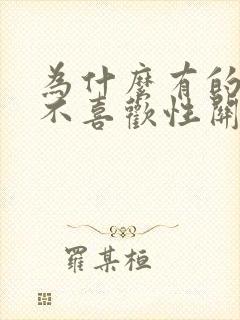 為什麼有的
不喜歡性關
羅某桓